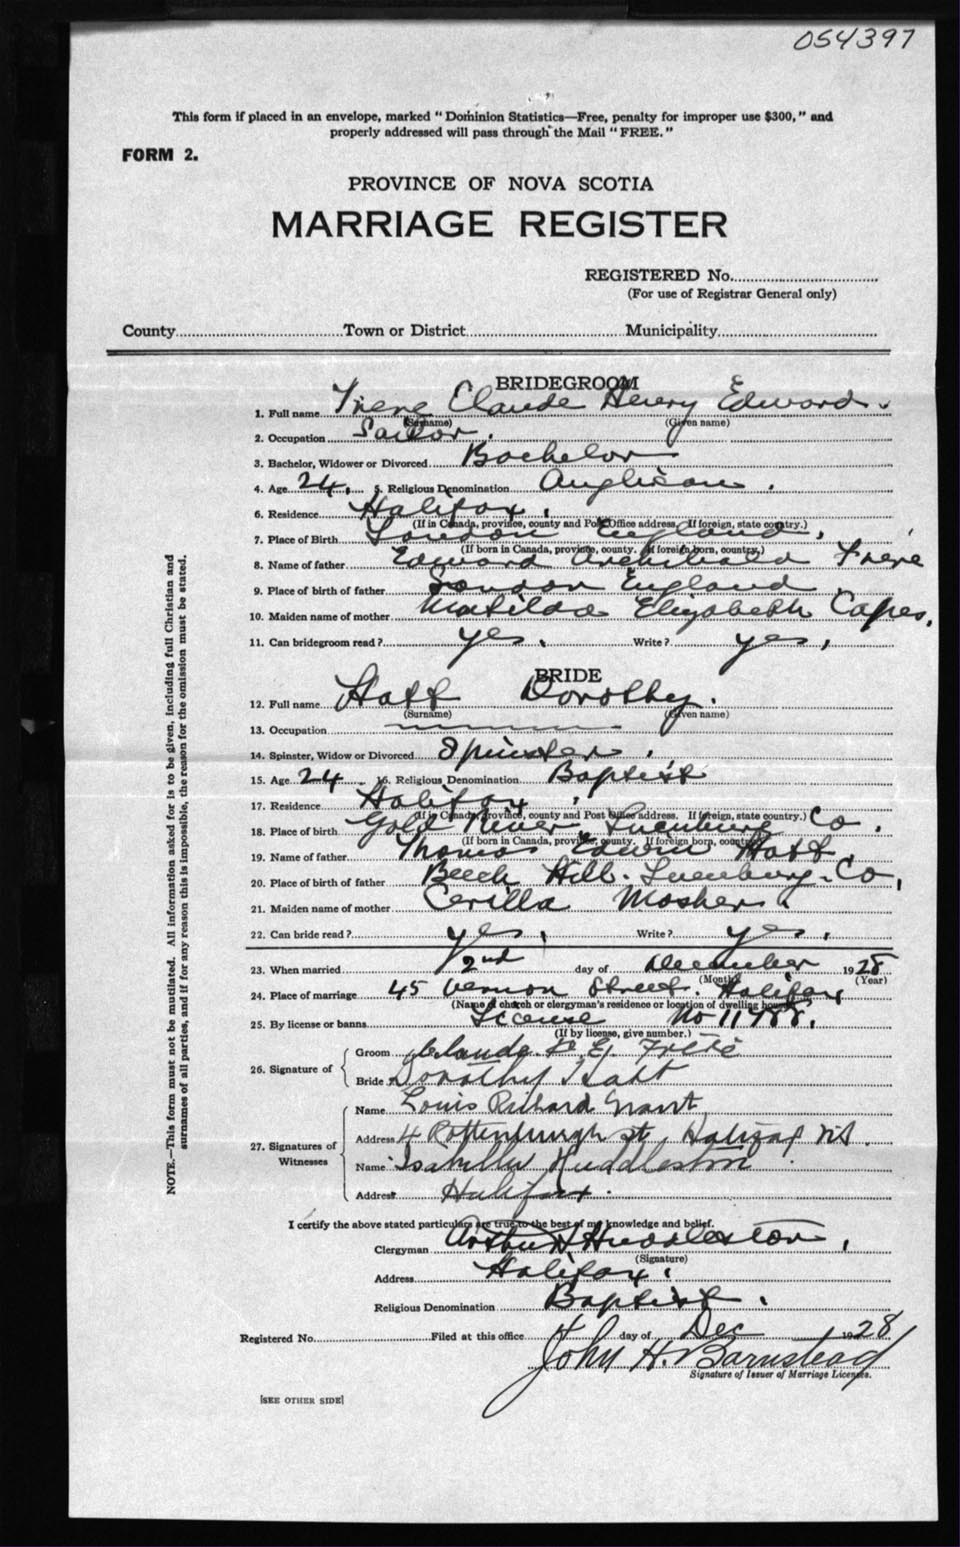 054397
This form if placed in an envelope, marked "Dominion Statistics—Free, penalty for improper use $300," and
properly addressed will pass through the Mail "FREE."
FORM 2.
PROVINCE OF NOVA SCOTIA
MARRIAGE REGISTER
REGISTERED No.
(For use of Registrar General only)
County Town or District Municipality
BRIDEGROOM
1. Full name Frere Claude Henry Edward.
(Surname) (Given name)
2. Occupation Sailor.
3. Bachelor, Widower or Divorced Bachelor
4. Age 24. 5. Religious Denomination Anglican.
6. Residence Halifax.
(If in Canada, province, county and Post Office address. If foreign, state country.)
7. Place of Birth London England.
(If born in Canada, province, county. If foreign born, country.)
8. Name of father Edward Archibald Frere
9. Place of birth of father London England
10. Maiden name of mother Matilda Elizabeth Capes.
11. Can bridegroom read? yes. Write? yes.
BRIDE
12. Full name Hatt Dorothy.
(Surname) (Given name)
13. Occupation
14. Spinster, Widow or Divorced Spinster.
15. Age 24 16. Religious Denomination Baptist
17. Residence Halifax.
(If in Canada, province, county and Post Office address. If foreign, state country.)
18. Place of birth Gold River Lunenburg Co.
(If born in Canada, province, county. If foreign born, country.)
19. Name of father Thomas Edwin Hatt.
20. Place of birth of father Beech Hill. Lunenburg. Co.
21. Maiden name of mother Cerilla Mosher.
22. Can bride read? yes. Write? yes.
23. When married 2nd day of December 1928
(Month) (Year)
24. Place of marriage 45 Vernon Street. Halifax
(Name of church or clergyman's residence or location of dwelling house)
25. By license or banns License No 11788.
(If by license, give number.)
26. Signature of
Groom Claude H. E. Frere
Bride Dorothy Hatt
27. Signatures of Witnesses
Name Louis Richard Grant
Address 4 Rottenburgh St, Halifax N.S.
Name Isabella Huddleston
Address Halifax.
I certify the above stated particulars are true to the best of my knowledge and belief.
Clergyman Arthur H Huddleston.
(Signature)
Address Halifax.
Religious Denomination Baptist.
Registered No. Filed at this office 4 day of Dec 1928
John H. Barnstead
Signature of Issuer of Marriage Licenses.
[SEE OTHER SIDE]
NOTE.—This form must not be mutilated. All information asked for is to be given, including full Christian and
surnames of all parties, and if for any reason this is impossible, the reason for the omission must be stated.